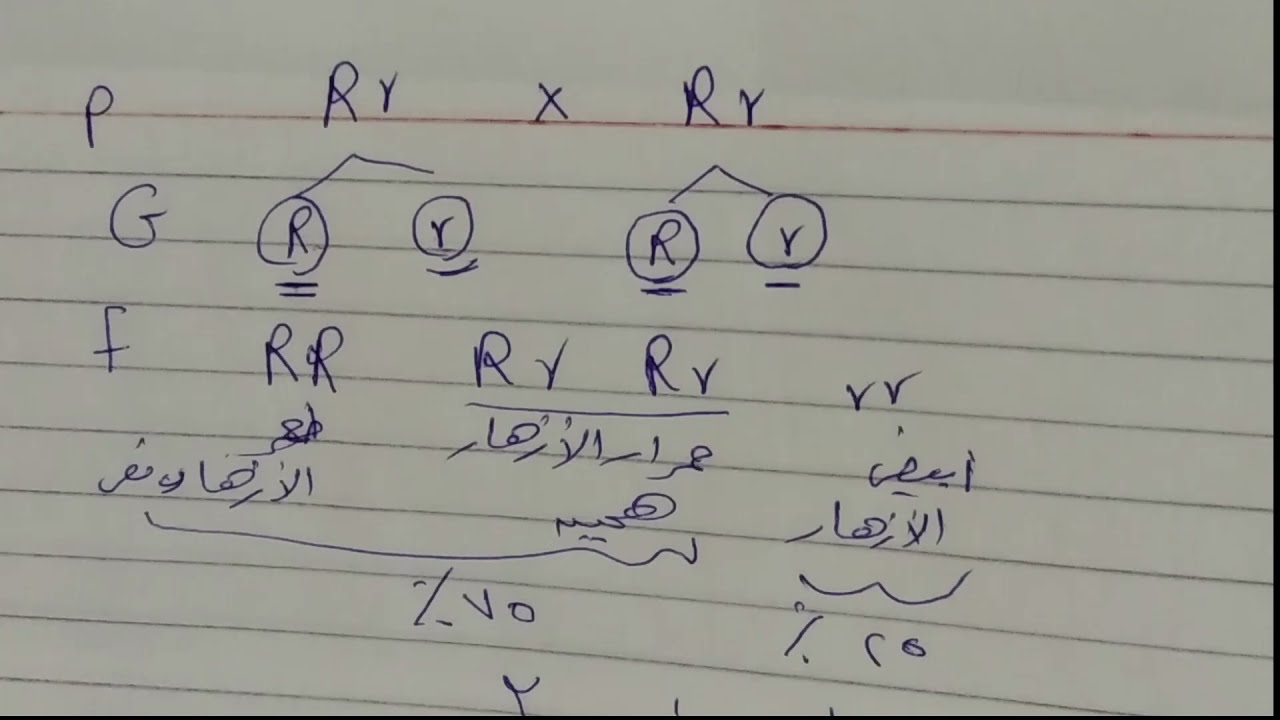 P Rr x Rr
G R r R r
F RR Rr Rr rr
حمراء الأزهار أبيض
الأزهار نقي هجين الأزهار
٪ ٧٥ ٪ ٢٥
٢